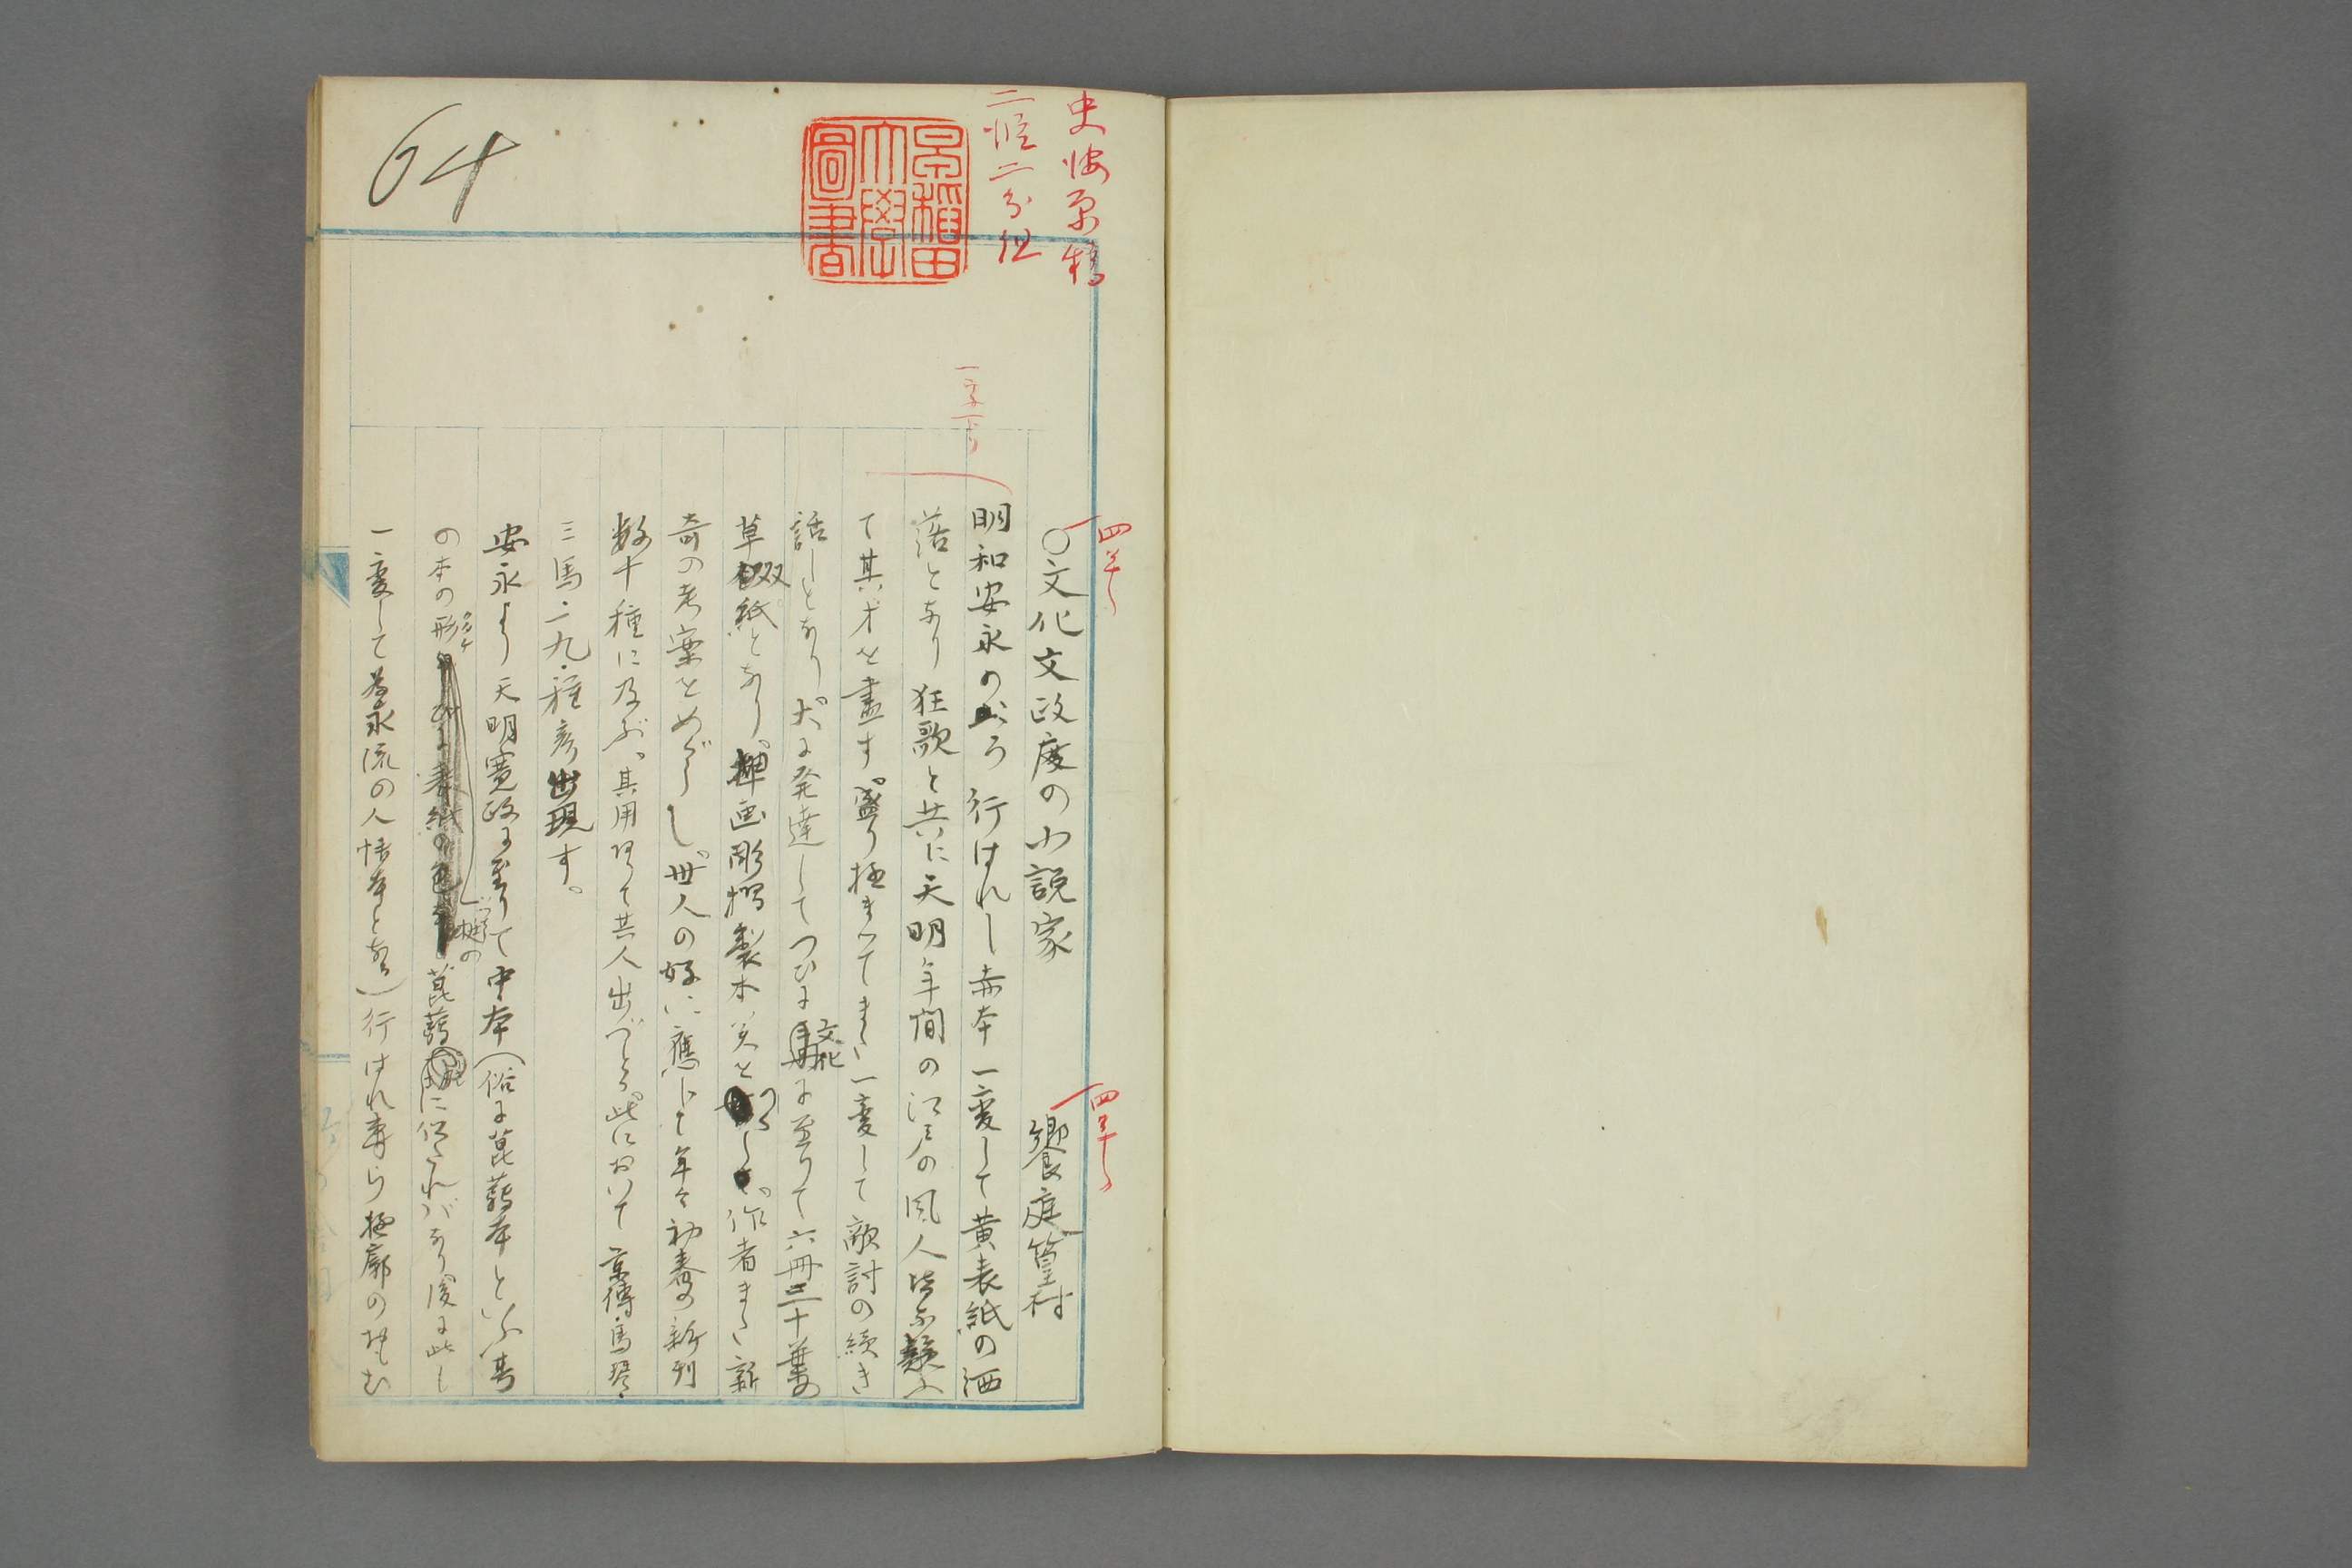 史海原稿
二段二分組
早稲田大學圖書
64
一字下り
四号
四号
○文化文政度の小説家 饗庭篁村
明和安永のころ行はれし赤本一変して黄表紙の洒
落となり狂歌と共に天明年間の江戸の風人皆示競ふ
て其才を盡す。盛り極まりてまた一変して敵討の続き
話しとなり大に発達してつひに文化に至りて六冊三十葉の
草双紙となり。挿画彫摺製本美をつくし。作者また新
奇の考案をめぐらし。世人の好に應じて年々初春の新刊
数十種に及ぶ。其用ありて其人出づとか。此において京傳・馬琴・
三馬・一九・種彦出現す。
安永より天明寛政に至りて中本（俗に蒟蒻本といふ其
の本の形の蒟蒻に似たればなり後に此し
一変して為永流の人情本となる）行はれ専ら極廓のたむ